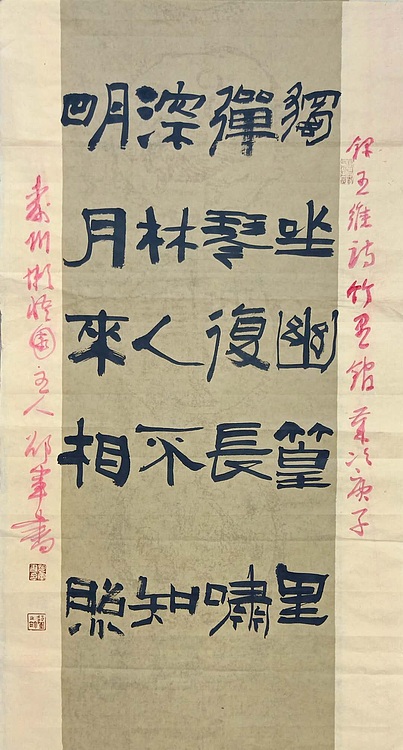 錄王維詩竹里館 歲次庚子
獨坐幽篁里
彈琴復長嘯
深林人不知
明月來相照
州園主人書